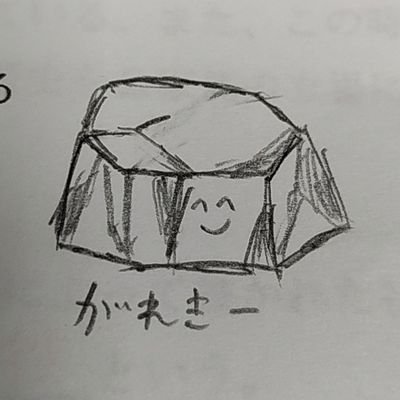 がれきー